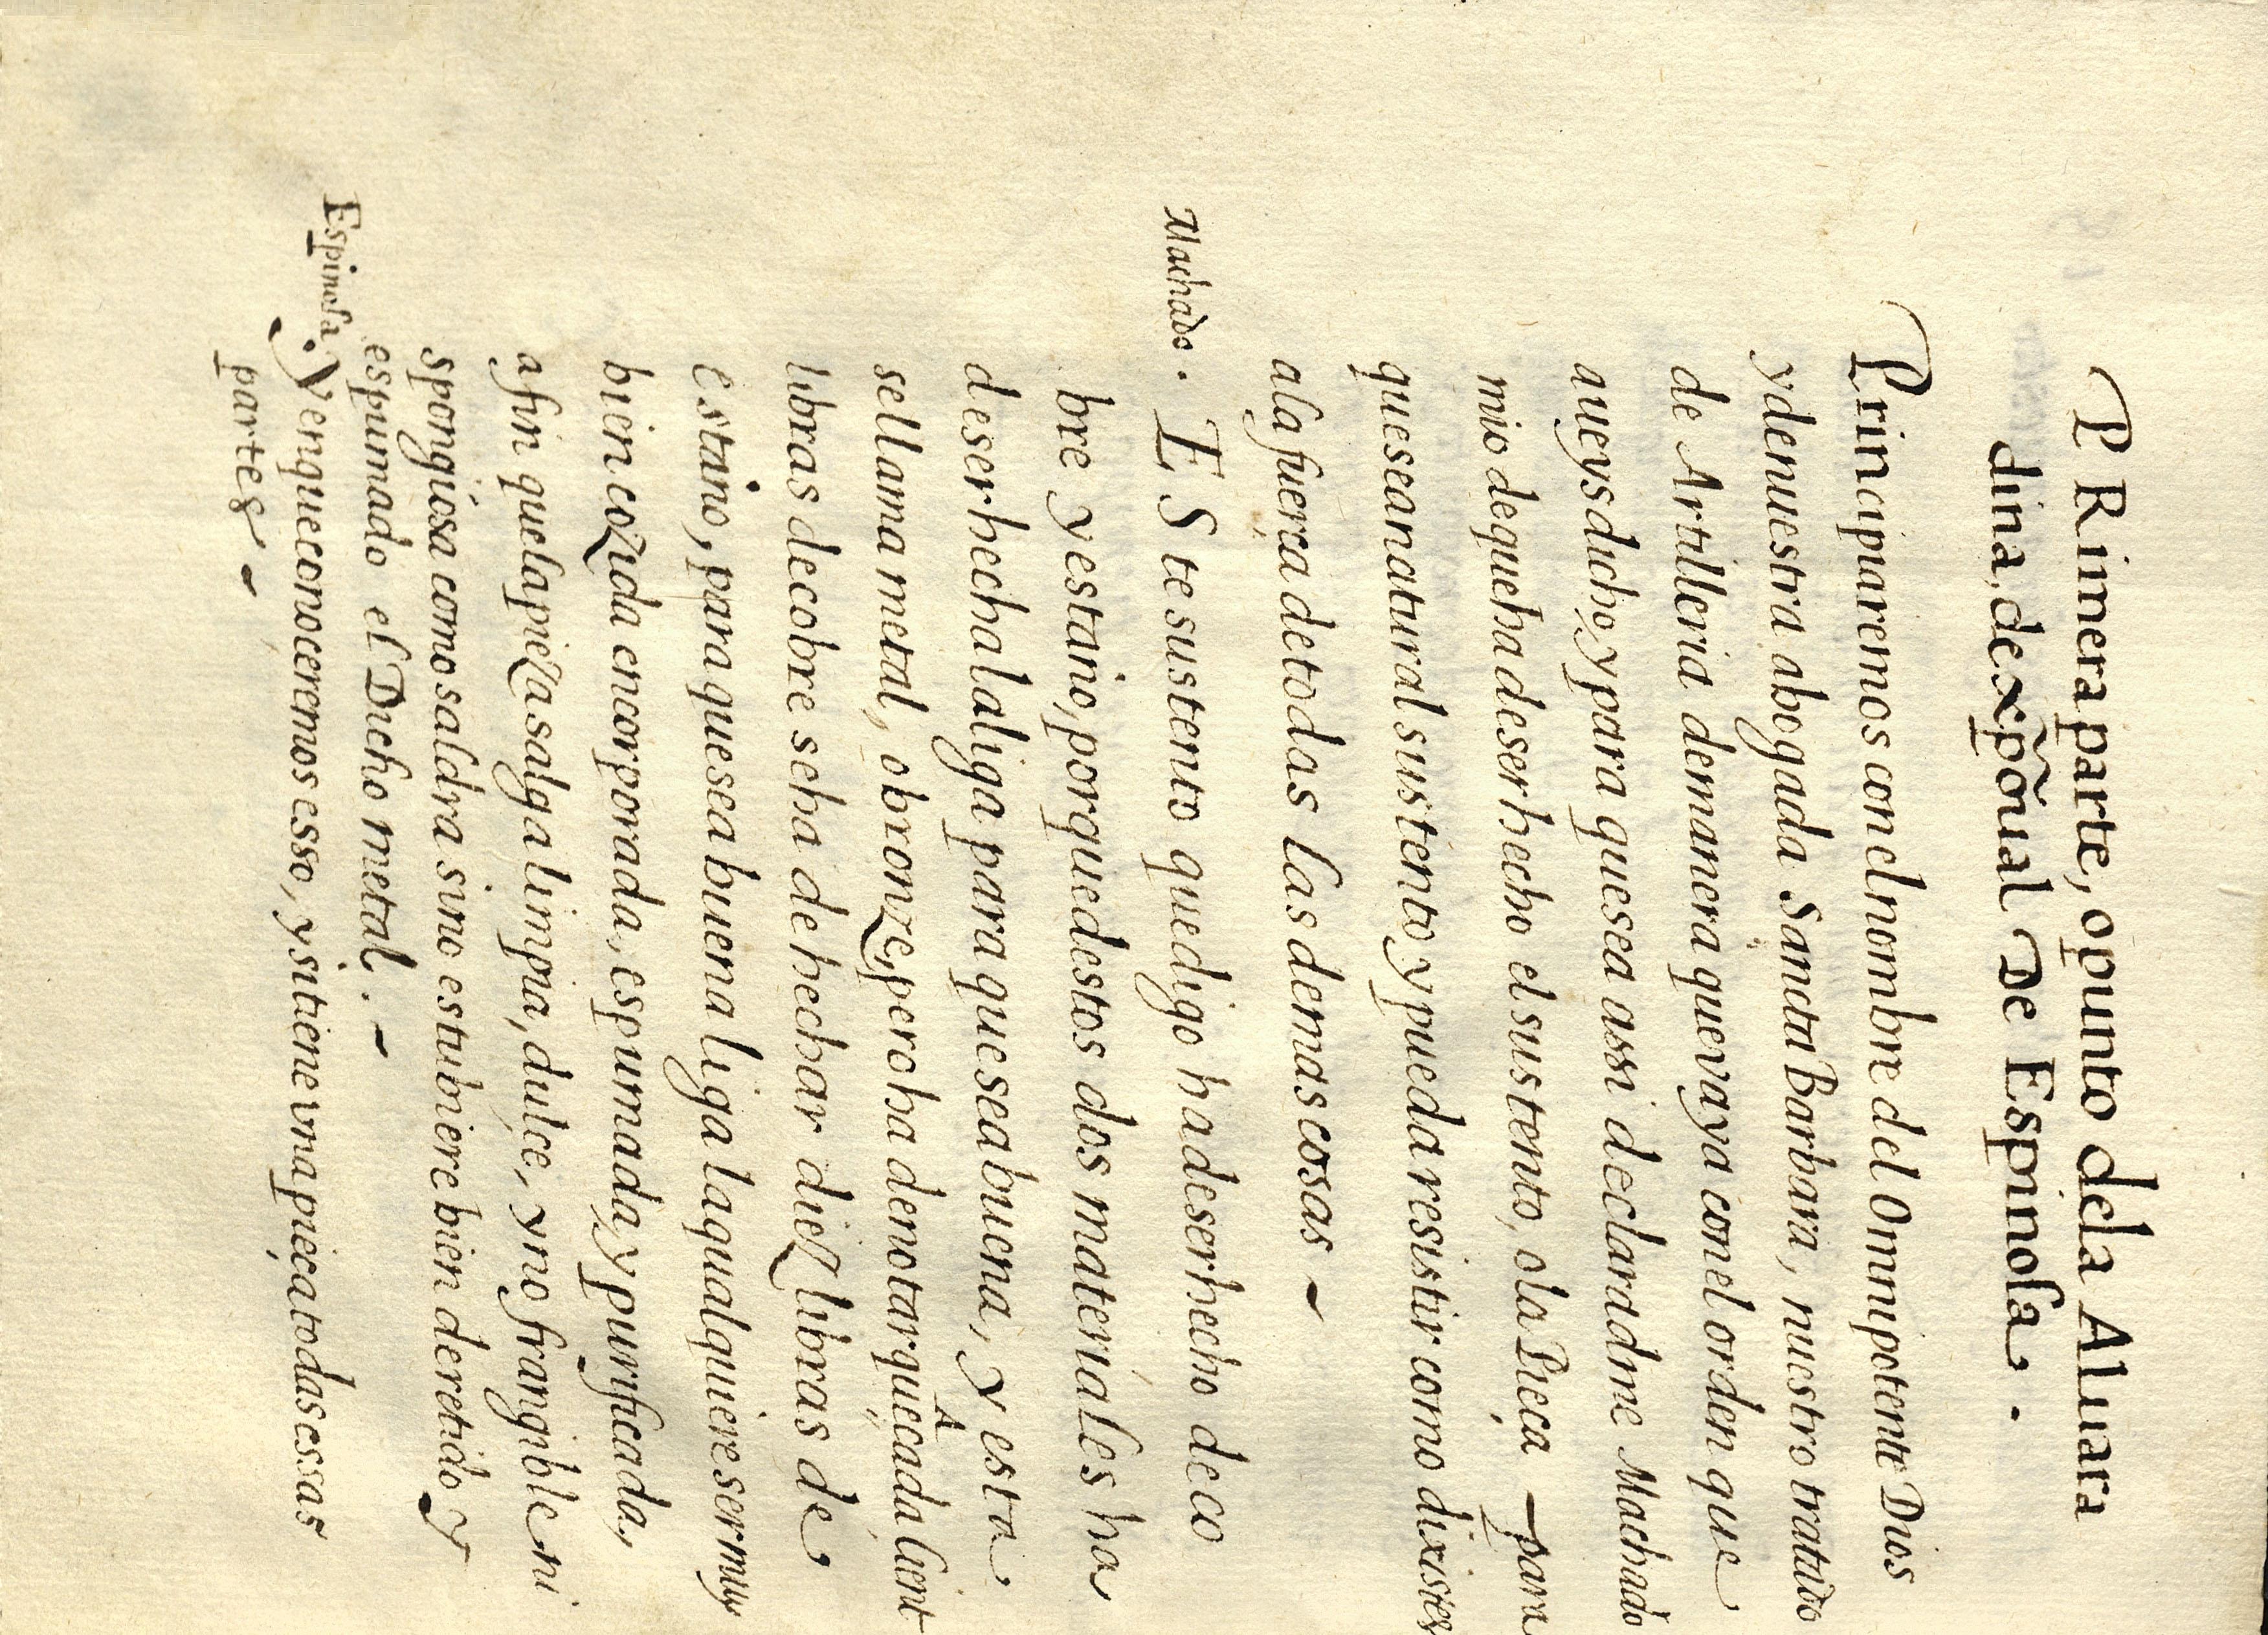 PRimera parte, o punto dela Aluara
dina, de xpõual De Espinosa.
Principiaremos con el nombre del Omnipotente Dios
y de nuestra abogada Sancta Barbara, nuestro tratado
de Artilleria de manera que vaya con el orden que
aueys dicho, y para que sea assi declaradme Machado
mio de que ha de ser hecho el sustento, o la Pieça para
que sea natural sustento y pueda resistir como dixistes
a la fuerça de todas las demas cosas
Machado. ESte sustento que digo ha de ser hecho de co
bre y estaño, porque destos dos materiales ha
de ser hecha la liga para que sea buena, y esta
se llama metal, o bronze, pero ha de notar que A cada cient
libras de cobre se ha de hechar diez libras de
estaño, para que sea buena liga la qual quiere ser muy
bien cozida encorporada, espumada, y purificada,
a fin que la pieza salga limpia, dulce, y no frangible ni
spongiosa como saldra sino estubiere bien deretido y
espumado el Dicho metal.
Espinosa. Y en que conoceremos esso, y si tiene vna pieça todas essas
partes